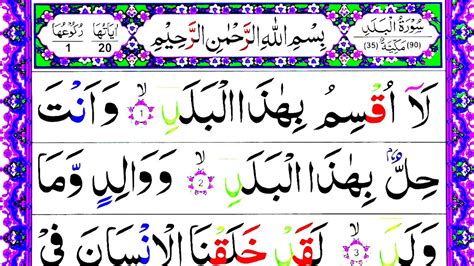 سُورَةُ الْبَلَدِ
(90) مَكِّيَّةٌ (35)
بِسْمِ اللّٰهِ الرَّحْمٰنِ الرَّحِيْمِ
اٰيَاتُهَا رُكُوْعُهَا
20 1
لَاۤ اُقْسِمُ بِهٰذَا الْبَلَدِ ۙ 1 وَاَنْتَ
حِلٌّۢ بِهٰذَا الْبَلَدِ ۙ 2 وَوَالِدٍ وَّمَا
وَلَدَ ۙ 3 لَقَدْ خَلَقْنَا الْاِنْسَانَ فِيْ